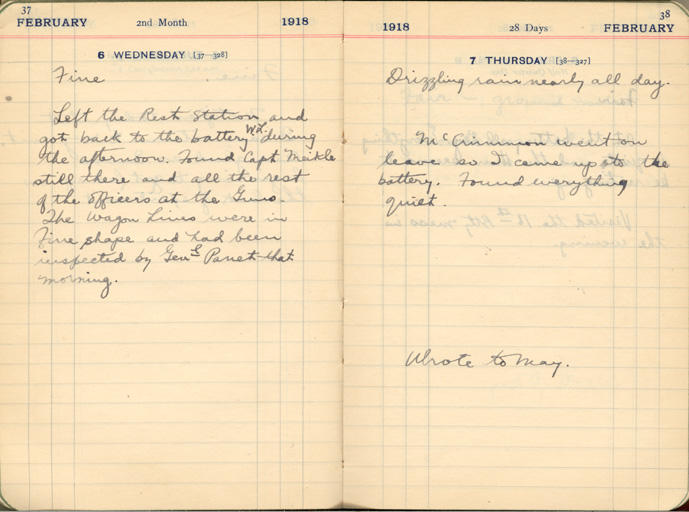 37
FEBRUARY 2nd Month 1918
6 WEDNESDAY [37—328]
Fine
Left the Rest Station and
got back to the battery W.L. during
the afternoon. Found Capt Meikle
still there and all the rest
of the officers at the Guns.
The Wagon Lines were in
Fine shape and had been
inspected by Genl Panet that
morning.
38
1918 28 Days FEBRUARY
7 THURSDAY [38—327]
Drizzling rain nearly all day.
McCrimmon went on
leave so I came up to the
battery. Found everything
quiet.
Wrote to May.